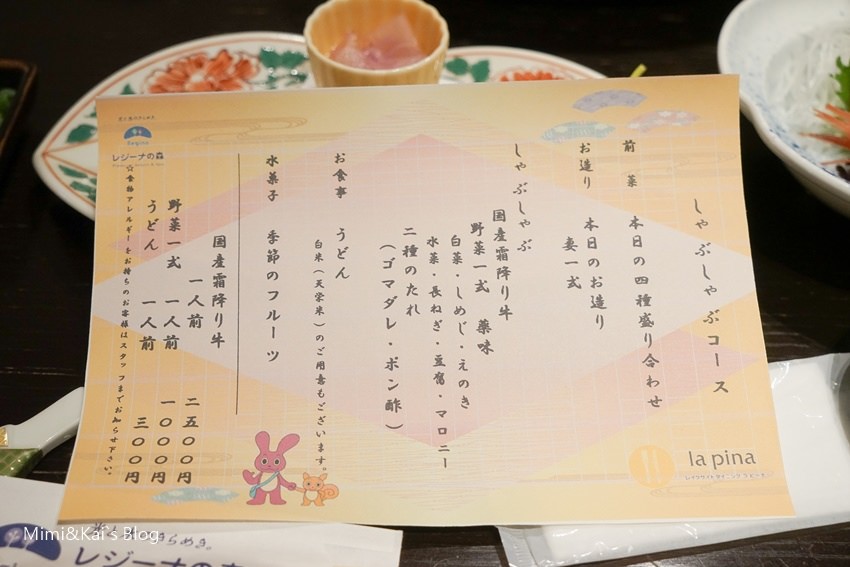 しゃぶしゃぶコース
前菜　本日の四種盛り合わせ
お造り　本日のお造り
妻一式
しゃぶしゃぶ
国産霜降り牛
野菜一式　薬味
白菜・しめじ・えのき
水菜・長ねぎ・豆腐・マロニー
二種のたれ
（ゴマダレ・ポン酢）
お食事　うどん
白米（天栄米）のご用意もございます。
水菓子　季節のフルーツ
国産霜降り牛
一人前　二五〇〇円
野菜一式　一人前　一〇〇〇円
うどん　一人前　三〇〇円
☆食物アレルギーをお持ちのお客様はスタッフまでお知らせ下さい。
Regina
レジーナの森
la pina
Mimi&Kai's Blog
レジーナの森